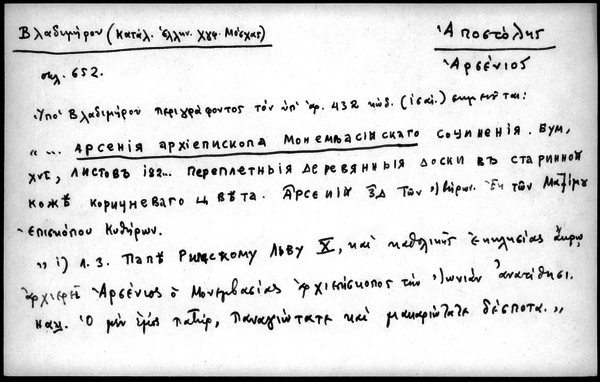 Βλαδιμήρου (Κατάλ. ἑλλην. Χγφ. Μόσχας)
Ἀποστόλης
Ἀρσένιος
σελ. 652.
Ὑπὸ Βλαδιμήρου περιγράφοντος τὸν ὑπ' ἀρ. 432 κώδ. σημειοῦται:
"... Арсенія архіепископа Монемвасійскаго сочиненія. Бум,
XVI, листовъ 182... Переплетныя деревянныя доски въ старинной
кожѣ коричневаго цвѣта. Ἐκ τῶν Μαξίμου
Ἐπισκόπου Κυθήρων.
" 1) л. 3. Папѣ Римскому Льву X, καὶ καθολικῆς ἐκκλησίας ἄκρῳ
ἀρχιερεῖ Ἀρσένιος ὁ Μονεμβασίας ἀρχιεπίσκοπος τὴν Ἰωνιὰν ἀνατίθησι.
Нач. Ὁ μὲν ἐμὸς πατήρ, παναγιώτατε καὶ μακαριώτατε δέσποτα."